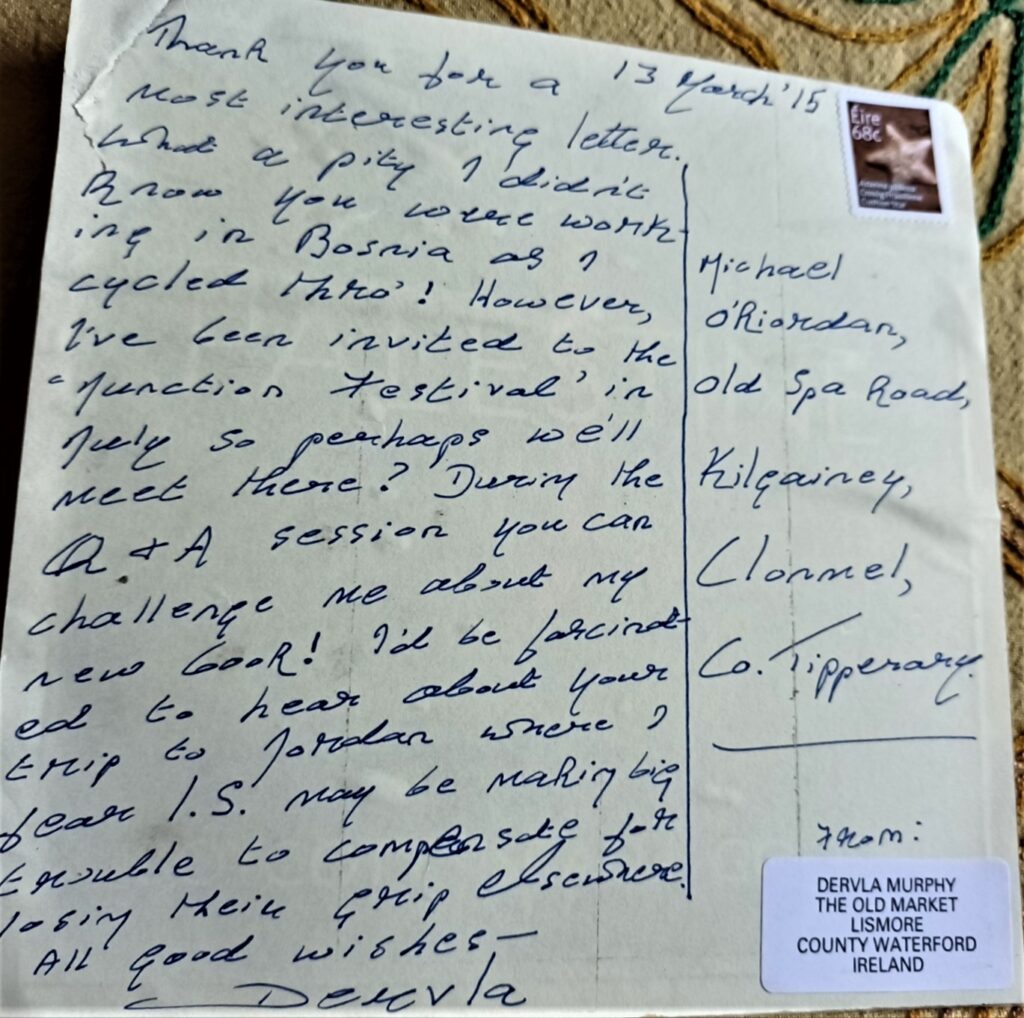 Thank you for a 13 March '15
most interesting letter.
What a pity I didn't
know you were work-
ing in Bosnia as I
cycled thro'! However,
I've been invited to the
'Junction Festival' in
July so perhaps we'll
meet there? During the
Q & A session you can
challenge me about my
new book! I'd be fascinat-
ed to hear about your
trip to Jordan where I
fear I.S. may be making big
trouble to compensate for
losing their grip elsewhere.
All good wishes—
Dervla
Éire
68c
Michael
O'Riordan,
Old Spa Road,
Kilgainey,
Clonmel,
Co. Tipperary.
From:
DERVLA MURPHY
THE OLD MARKET
LISMORE
COUNTY WATERFORD
IRELAND